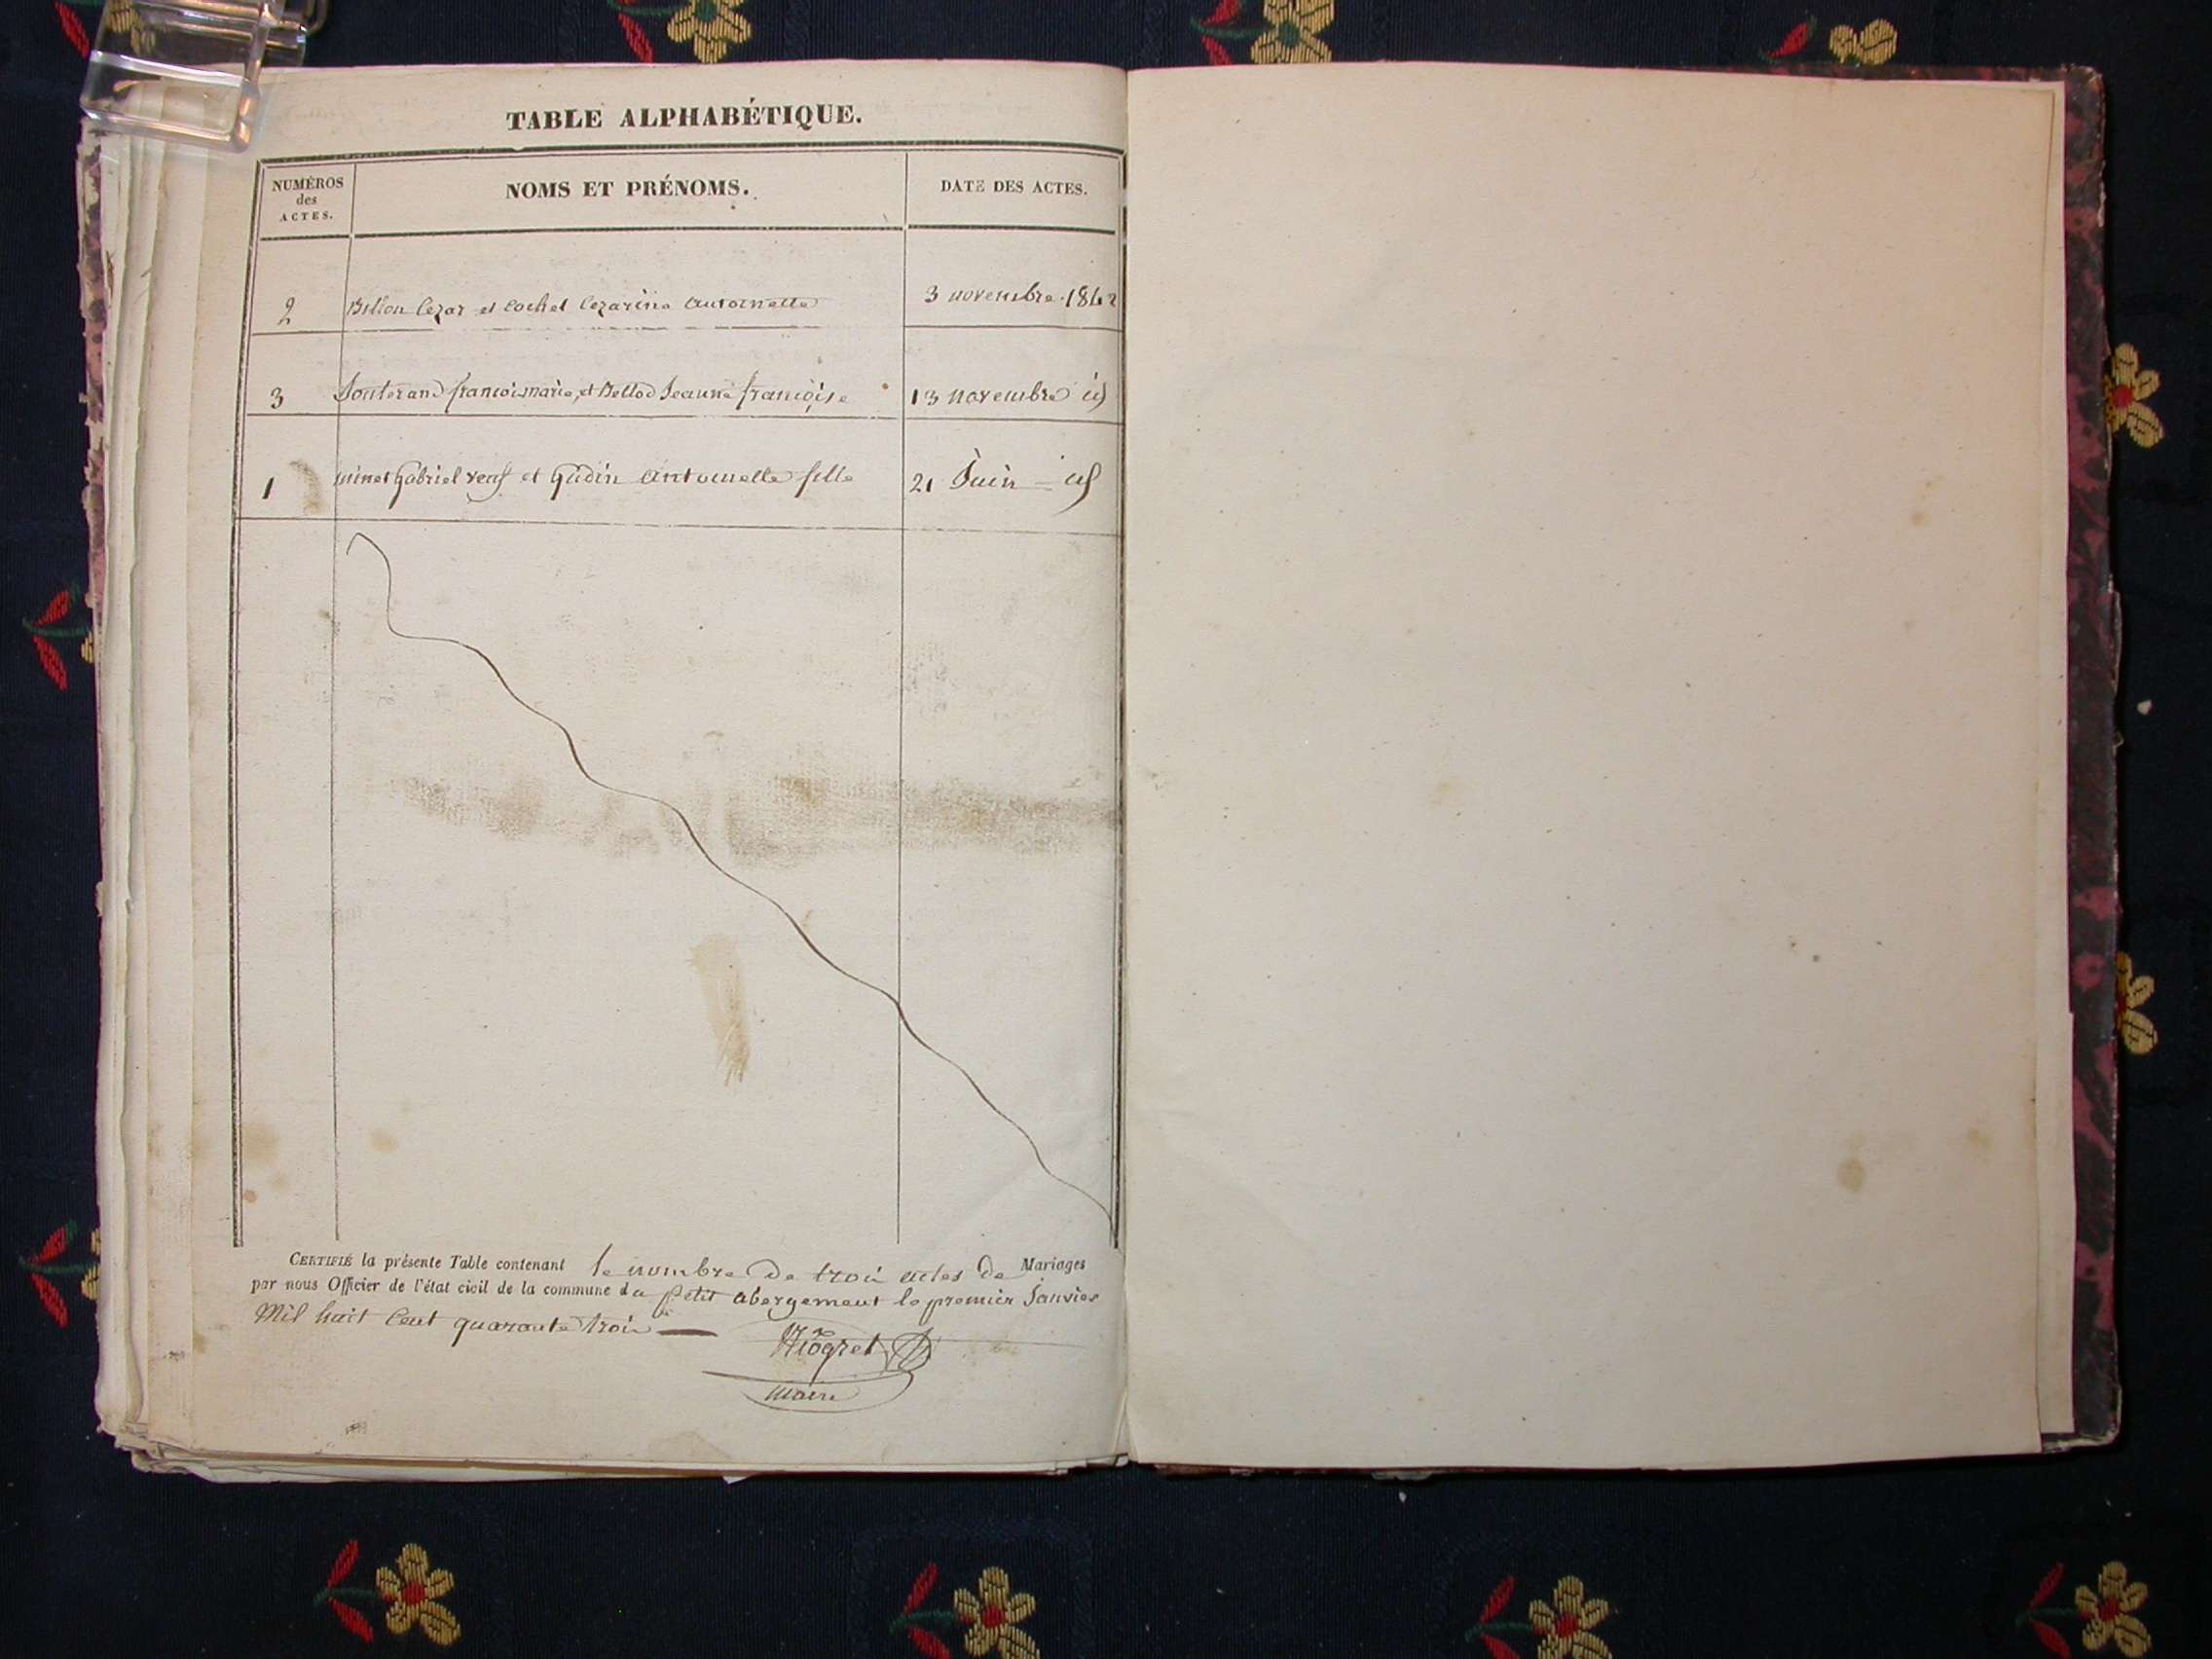 TABLE ALPHABÉTIQUE.
NUMÉROS
des
ACTES.
NOMS ET PRÉNOMS.
DATE DES ACTES.
2 Billion Cezar et Cochet Cezarine Antoinette 3 novembre 1842
3 francois marie, et Bellod Jeanne françoise 13 novembre id
1 minet Gabriel veuf et Gudin Antoinette fille 21 Juin id
CERTIFIÉ la présente Table contenant le nombre de troi actes de Mariages
par nous Officier de l'état civil de la commune du petit abergement le premier Janvier
Mil huit Cent quarante troi
maire